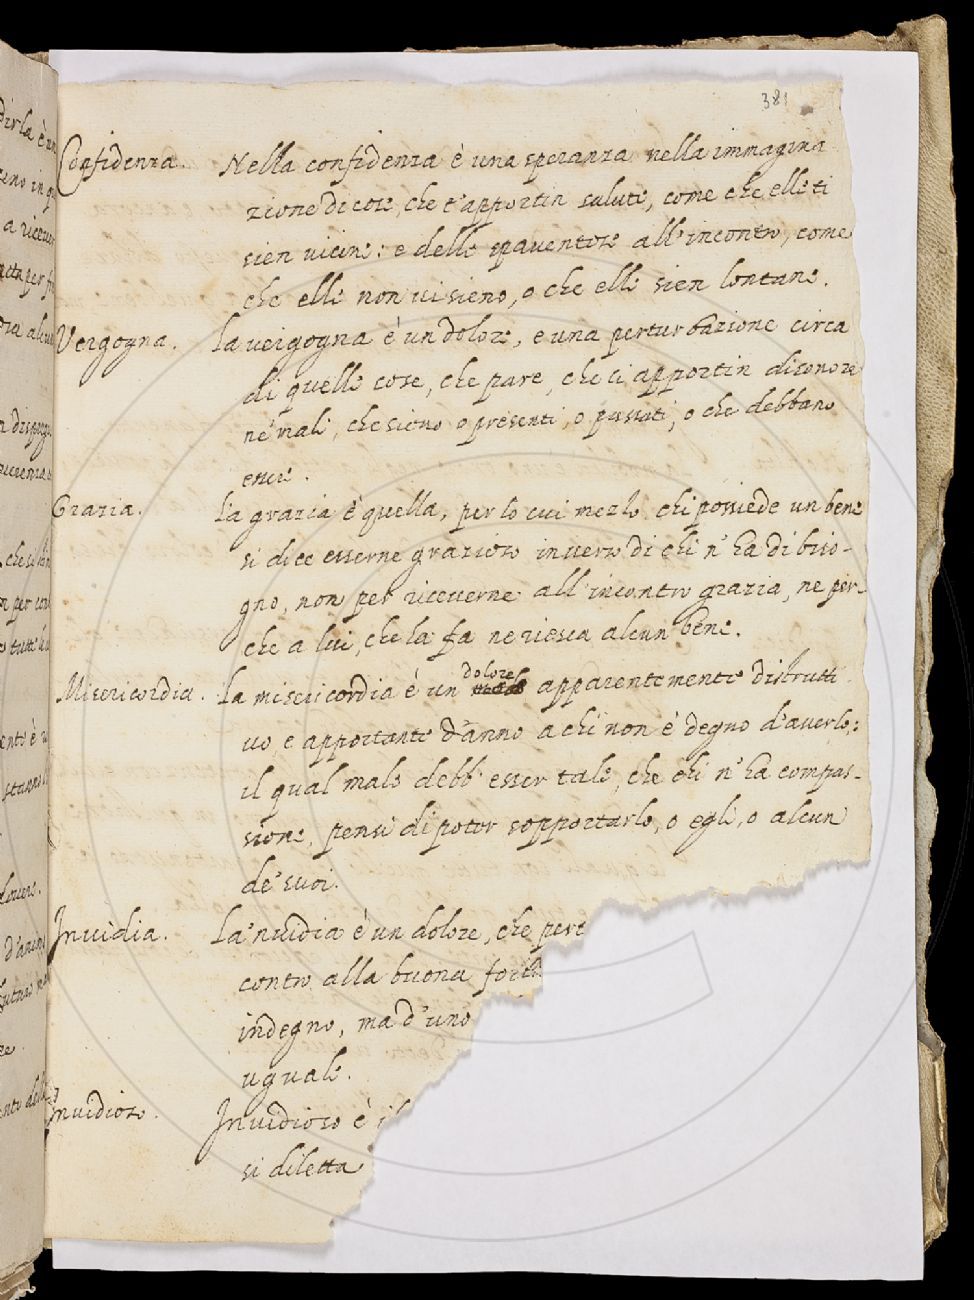 381
Confidenza. Nella confidenza è una speranza nella immagina
zione di cose, che t'apportin salute, come che elle ti
sien vicine: e delle spaventose all'incontro, come
che elle non vi sieno, o che elle sien lontane.
Vergogna. La vergogna è un dolore, e una perturbazione circa
di quelle cose, che pare, che ci apportin disonore
ne' mali, che sieno o presenti, o passati, o che debbano
essere.
Grazia. La grazia è quella, per lo cui mezzo chi possiede un bene
si dice esserne grazioso inverso di chi n'ha di biso-
gno, non per riceverne all'incontro grazia, ne per-
che a lui, che la fa ne riesca alcun bene.
Misericordia. La misericordia è un dolore apparentemente distrutti
vo, e apportante danno a chi non è degno d'averlo;
il qual male debb'esser tale, che chi n'ha compas-
sione, pensi di poter sopportarlo, o egli, o alcun
de' suoi.
Invidia. La'nvidia è un dolore, che pert
contro alla buona fort
indegno, ma d'uno
uguale.
Invidioso. Invidioso è il
si diletta